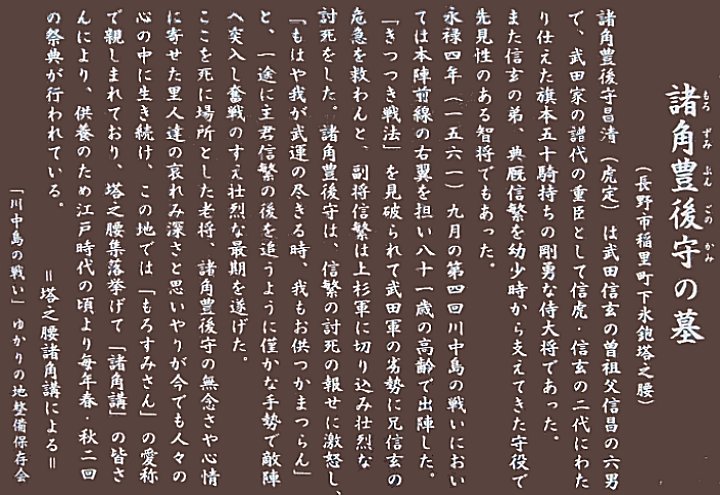 諸角豊後守の墓
もろ ずみ ぶん ごの かみ
(長野市稲里町下氷鉋塔之腰)
諸角豊後守昌清(虎定)は武田信玄の曽祖父信昌の六男
で、武田家の譜代の重臣として信虎・信玄の二代にわた
り仕えた旗本五十騎持ちの剛勇な侍大将であった。
また信玄の弟、典厩信繁を幼少時から支えてきた守役で
先見性のある智将でもあった。
永禄四年(一五六一)九月の第四回川中島の戦いにおい
ては本陣前線の右翼を担い八十一歳の高齢で出陣した。
「きつつき戦法」を見破られて武田軍の劣勢に兄信玄の
危急を救わんと、副将信繁は上杉軍に切り込み壮烈な
討死をした。諸角豊後守は、信繁の討死の報せに激怒し、
「もはや我が武運の尽きる時、我もお供つかまつらん」
と、一途に主君信繁の後を追うように僅かな手勢で敵陣
へ突入し奮戦のすえ壮烈な最期を遂げた。
ここを死に場所とした老将、諸角豊後守の無念さや心情
に寄せた里人達の哀れみ深さと思いやりが今でも人々の
心の中に生き続け、この地では「もろすみさん」の愛称
で親しまれており、塔之腰集落挙げて「諸角講」の皆さ
んにより、供養のため江戸時代の頃より毎年春 秋二回
の祭典が行われている。
=塔之腰諸角講による=
「川中島の戦い」ゆかりの地整備保存会